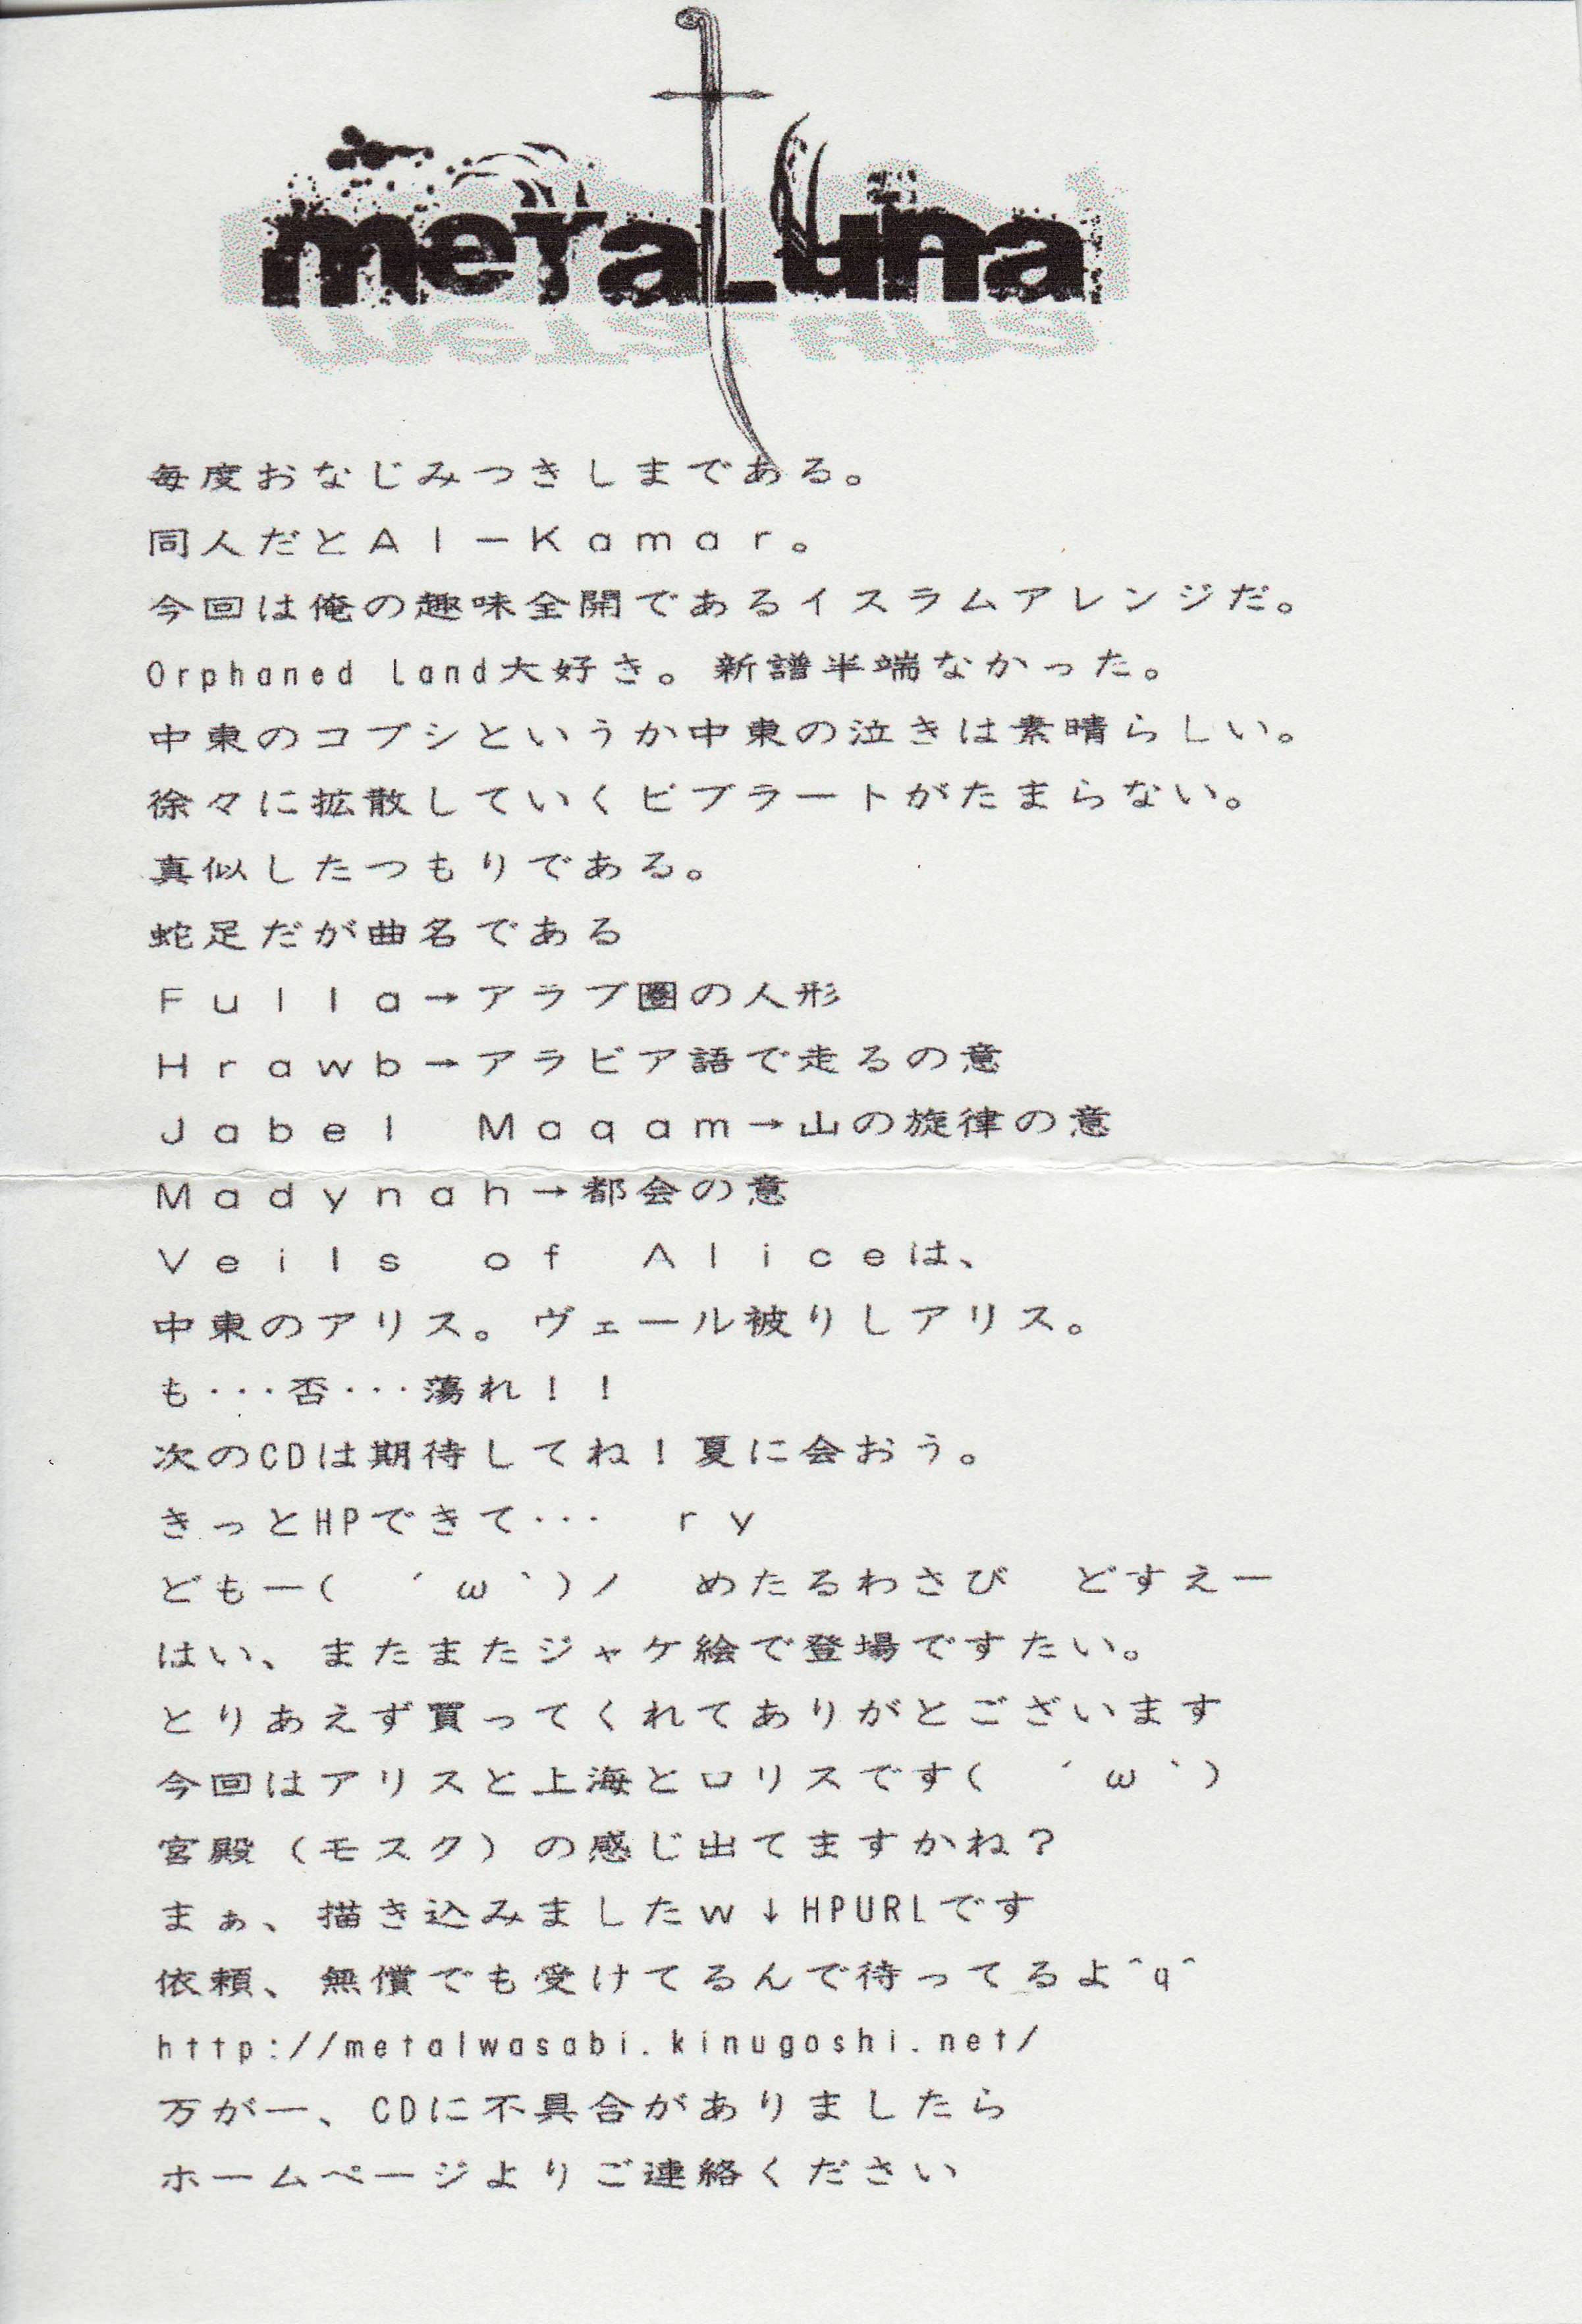 metaluna
毎度おなじみつきしまである。
同人だとAl－Kamar。
今回は俺の趣味全開であるイスラムアレンジだ。
Orphaned Land大好き。新譜半端なかった。
中東のコブシというか中東の泣きは素晴らしい。
徐々に拡散していくビブラートがたまらない。
真似したつもりである。
蛇足だが曲名である
Fulla→アラブ圏の人形
Hrawb→アラビア語で走るの意
Jabel　Maqam→山の旋律の意
Madynah→都会の意
Veils　of　Aliceは、
中東のアリス。ヴェール被りしアリス。
も･･･否･･･蕩れ！！
次のCDは期待してね！夏に会おう。
きっとHPできて･･･　ry
どもー(　´ω｀)ノ　めたるわさび　どすえー
はい、またまたジャケ絵で登場ですたい。
とりあえず買ってくれてありがとございます
今回はアリスと上海とロリスです(　´ω｀)
宮殿（モスク）の感じ出てますかね？
まぁ、描き込みましたw↓HPURLです
依頼、無償でも受けてるんで待ってるよ^q^
http://metalwasabi.kinugoshi.net/
万が一、CDに不具合がありましたら
ホームページよりご連絡ください